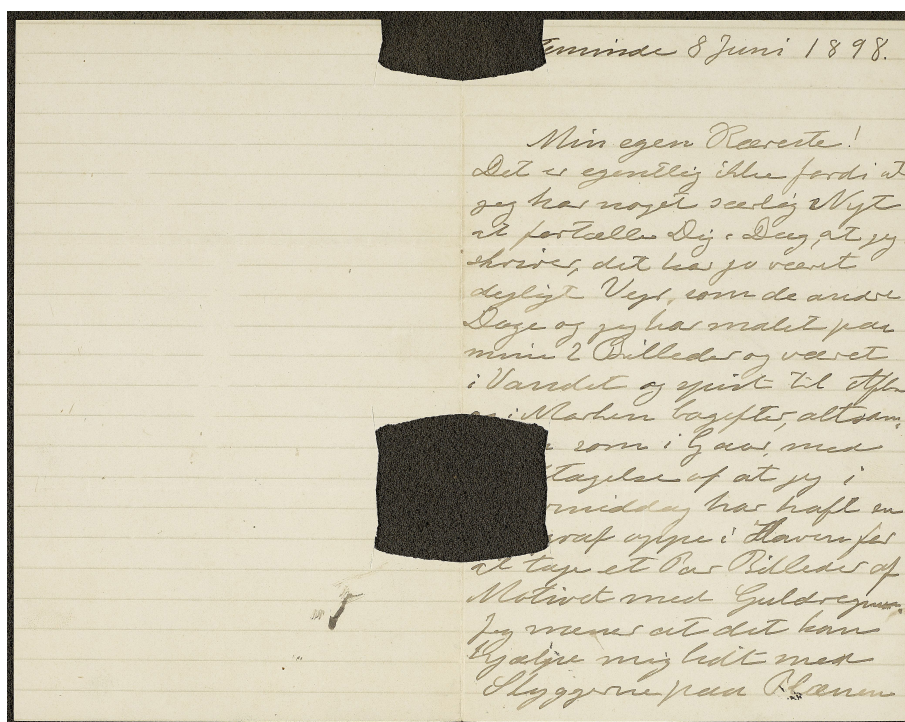 eminde 8 Juni 1898.
Min egen Kæreste!
Det er egentlig ikke fordi at
jeg har noget særlig Nyt
at fortælle Dig i Dag, at jeg
skriver, det har jo været
dejligt Vejr, som de andre
Dage og jeg har malet paa
mine 2 Billeder og været
i Vandet og spist til Aften
i Marken bagefter, altsam
som i Gaar, med
tagelse af at jeg i
middag har haft en
graf oppe i Haven for
at tage et Par Billeder af
Motivet med Guldregnen.
Jeg mener at det kan
hjælpe mig lidt med
Skyggerne paa Plænen